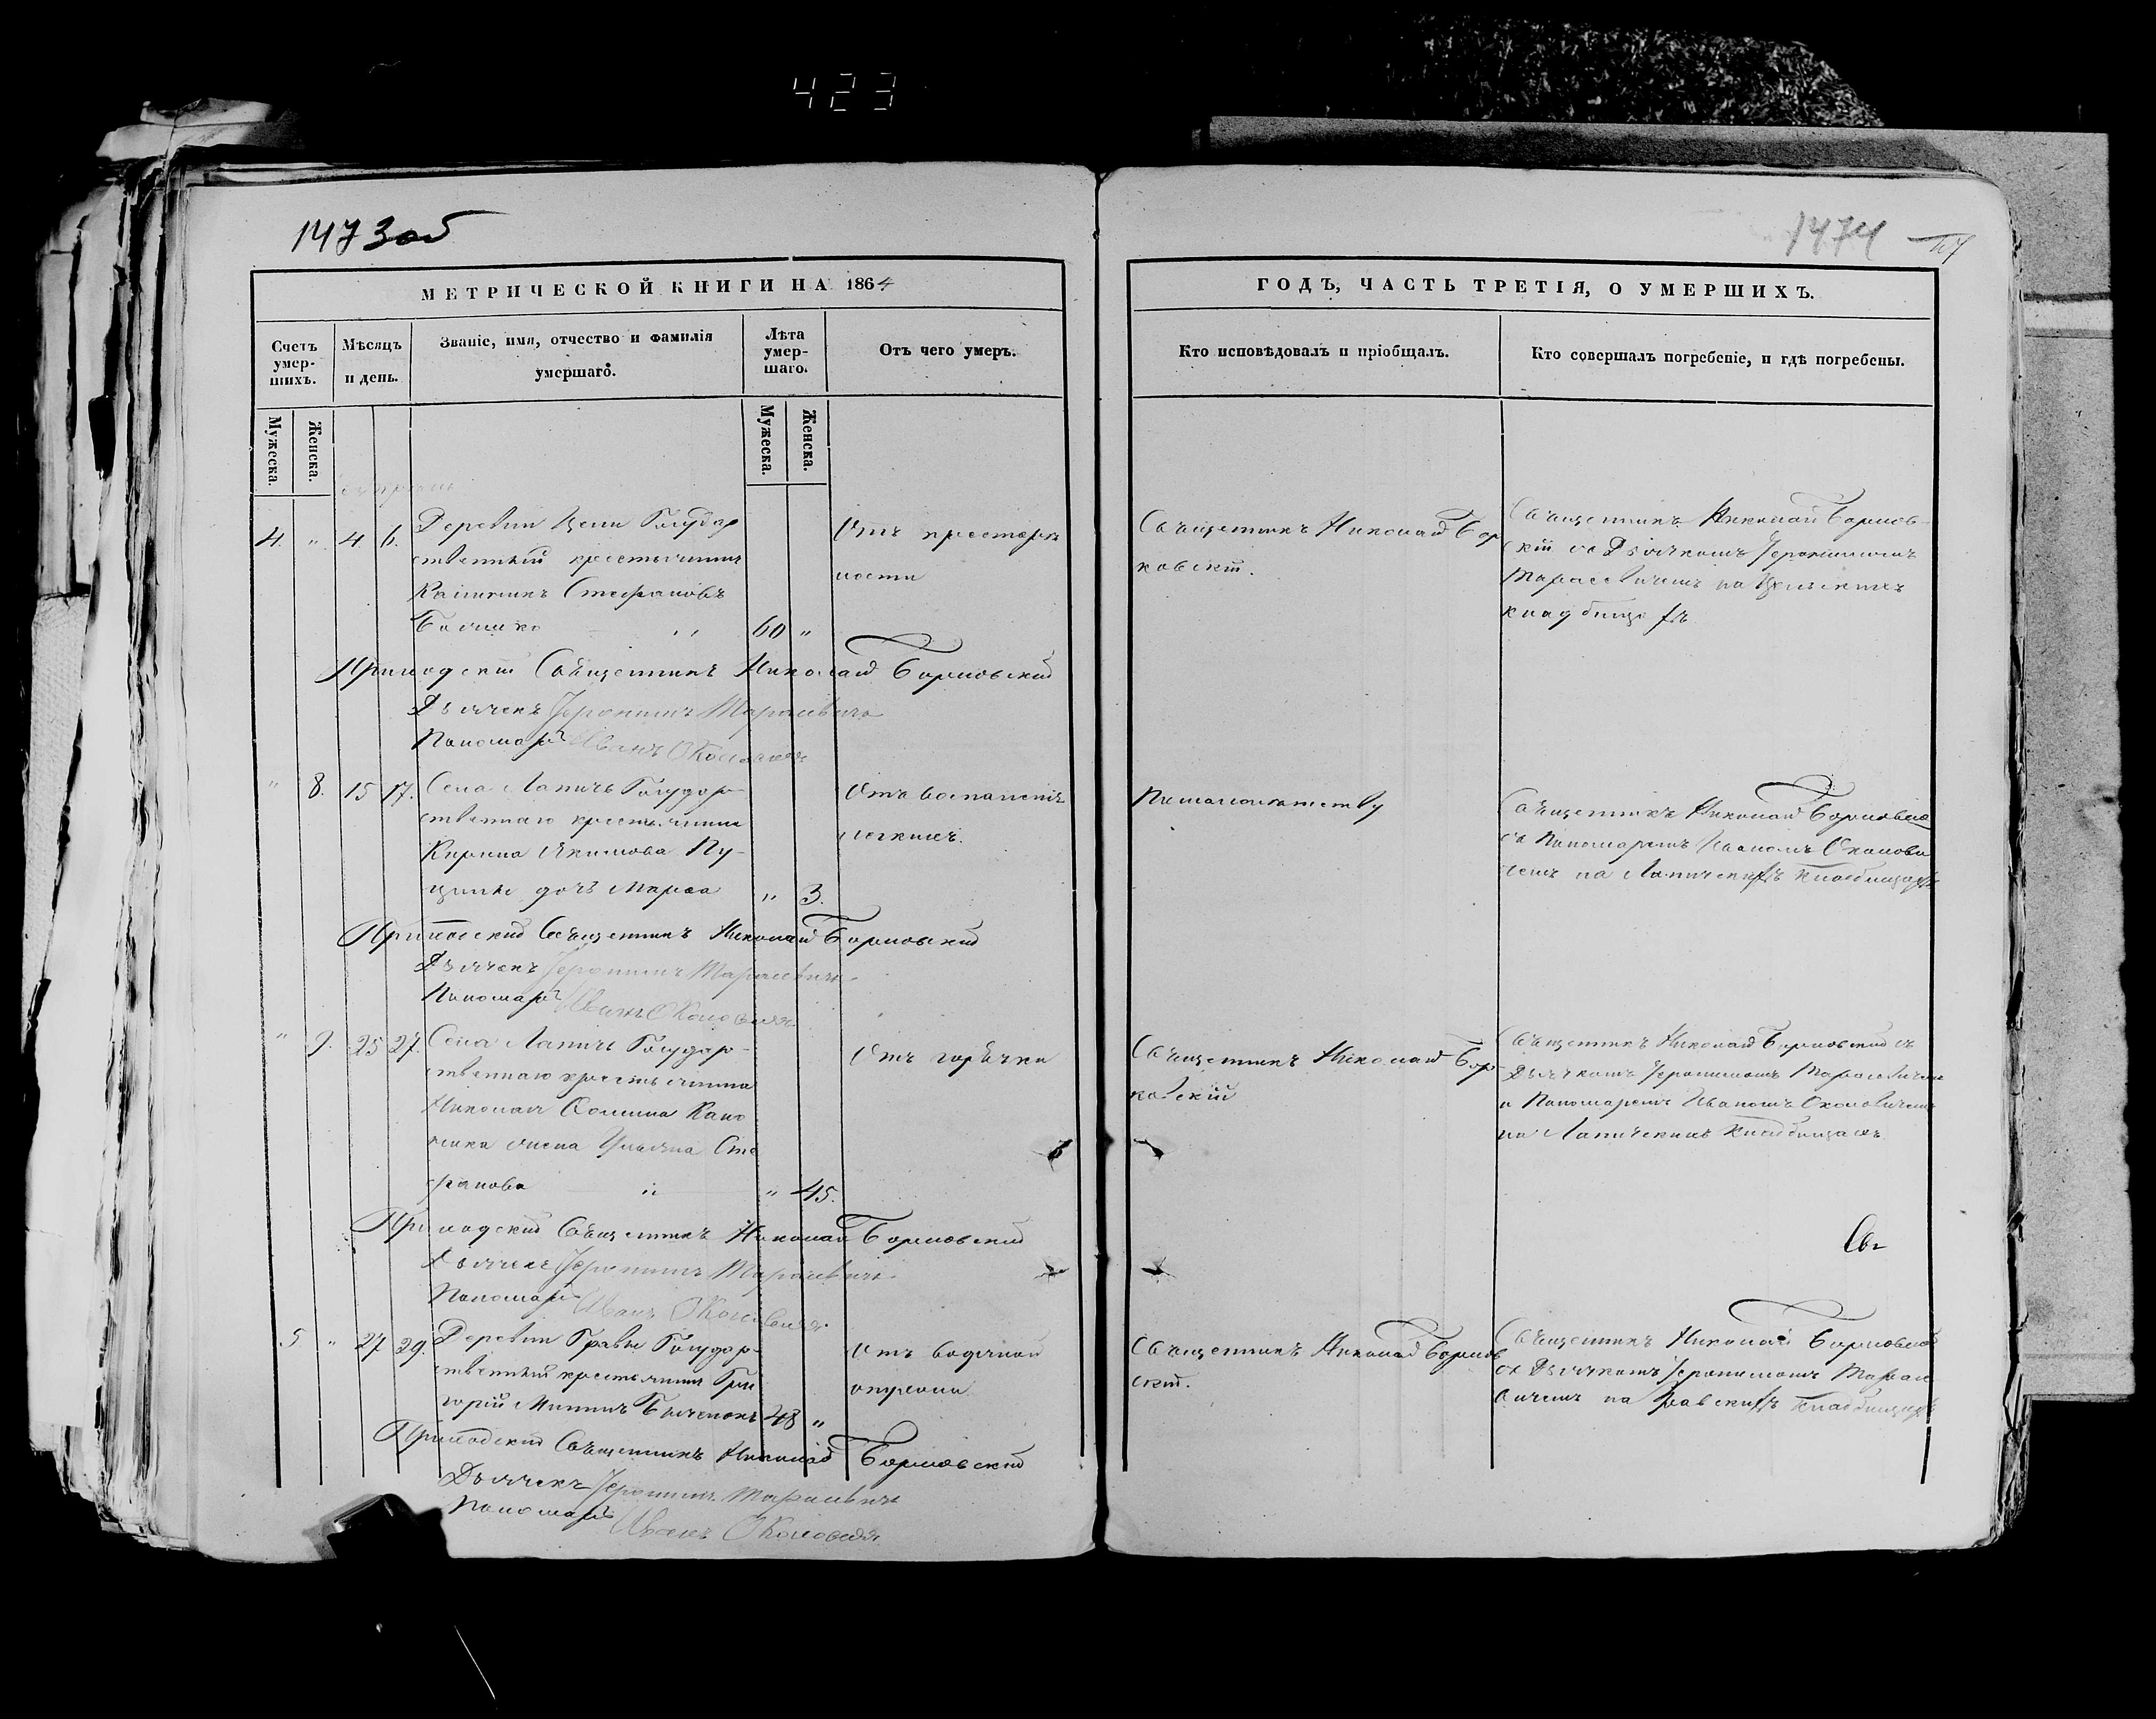 423
1473 об
1474
МЕТРИЧЕСКОЙ КНИГИ НА 1864
ГОДЪ, ЧАСТЬ ТРЕТІЯ, О УМЕРШИХЪ.
Счетъ умер-шихъ.
Мѣсяцъ и день.
Званіе, имя, отчество и фамилія умершаго.
Лѣта умер-шаго.
Отъ чего умеръ.
Кто исповѣдовалъ и пріобщалъ.
Кто совершалъ погребеніе, и гдѣ погребены.
Мужеска.
Женска.
Мужеска.
Женска.
4. " 4 6.
Деревни Цели Государ
ственный крестьянинъ
Стефановъ
60 "
Отъ престарѣ
лости
Священникъ Николай Бор
ковскій.
Священникъ Николай Борков
скій съ Дьячкомъ Іеронимомъ
Тарасевичемъ на Цельскихъ
кладбищахъ
Приходскій Священникъ Николай Борковскій
Дьячекъ Іеронимъ Тарасевичъ
Пономарь Иванъ Околовичъ
" 8. 15 17.
Села Лапичъ Государ-
ственнаго крестьянина
Якимова
дочь Марѳа " 3.
Отъ воспаленія
легкихъ.
По малолѣтству
Священникъ Николай Борковскій
съ Пономаремъ Иваномъ Околови
чемъ на Лапичскихъ кладбищахъ
Приходскій Священникъ Николай Борковскій
Дьячекъ Іеронимъ Тарасевичъ
Пономарь Иванъ Околовичъ
" 9. 25 27.
Села Лапичъ Государ-
ственнаго крестьянина
Николая
жена Ульяна Сте
фанова " 45.
Отъ горячки
Священникъ Николай Бор
ковскій
Священникъ Николай Борковскій съ
Дьячкомъ Іеронимомъ Тарасевичемъ
и Пономаремъ Иваномъ Околовичемъ
на Лапичскихъ кладбищахъ
Приходскій Священникъ Николай Борковскій
Дьячекъ Іеронимъ Тарасевичъ
Пономарь Иванъ Околовичъ
Св
5 " 27 29.
Деревни Государ-
ственный крестьянинъ Гри
горій 48 "
Отъ водяной
опухоли
Священникъ Николай Борков
скій.
Священникъ Николай Борковскій
съ Дьячкомъ Іеронимомъ Тарасе
вичемъ на кладбищахъ
Приходскій Священникъ Николай Борковскій
Дьячекъ Іеронимъ Тарасевичъ
Пономарь Иванъ Околовичъ